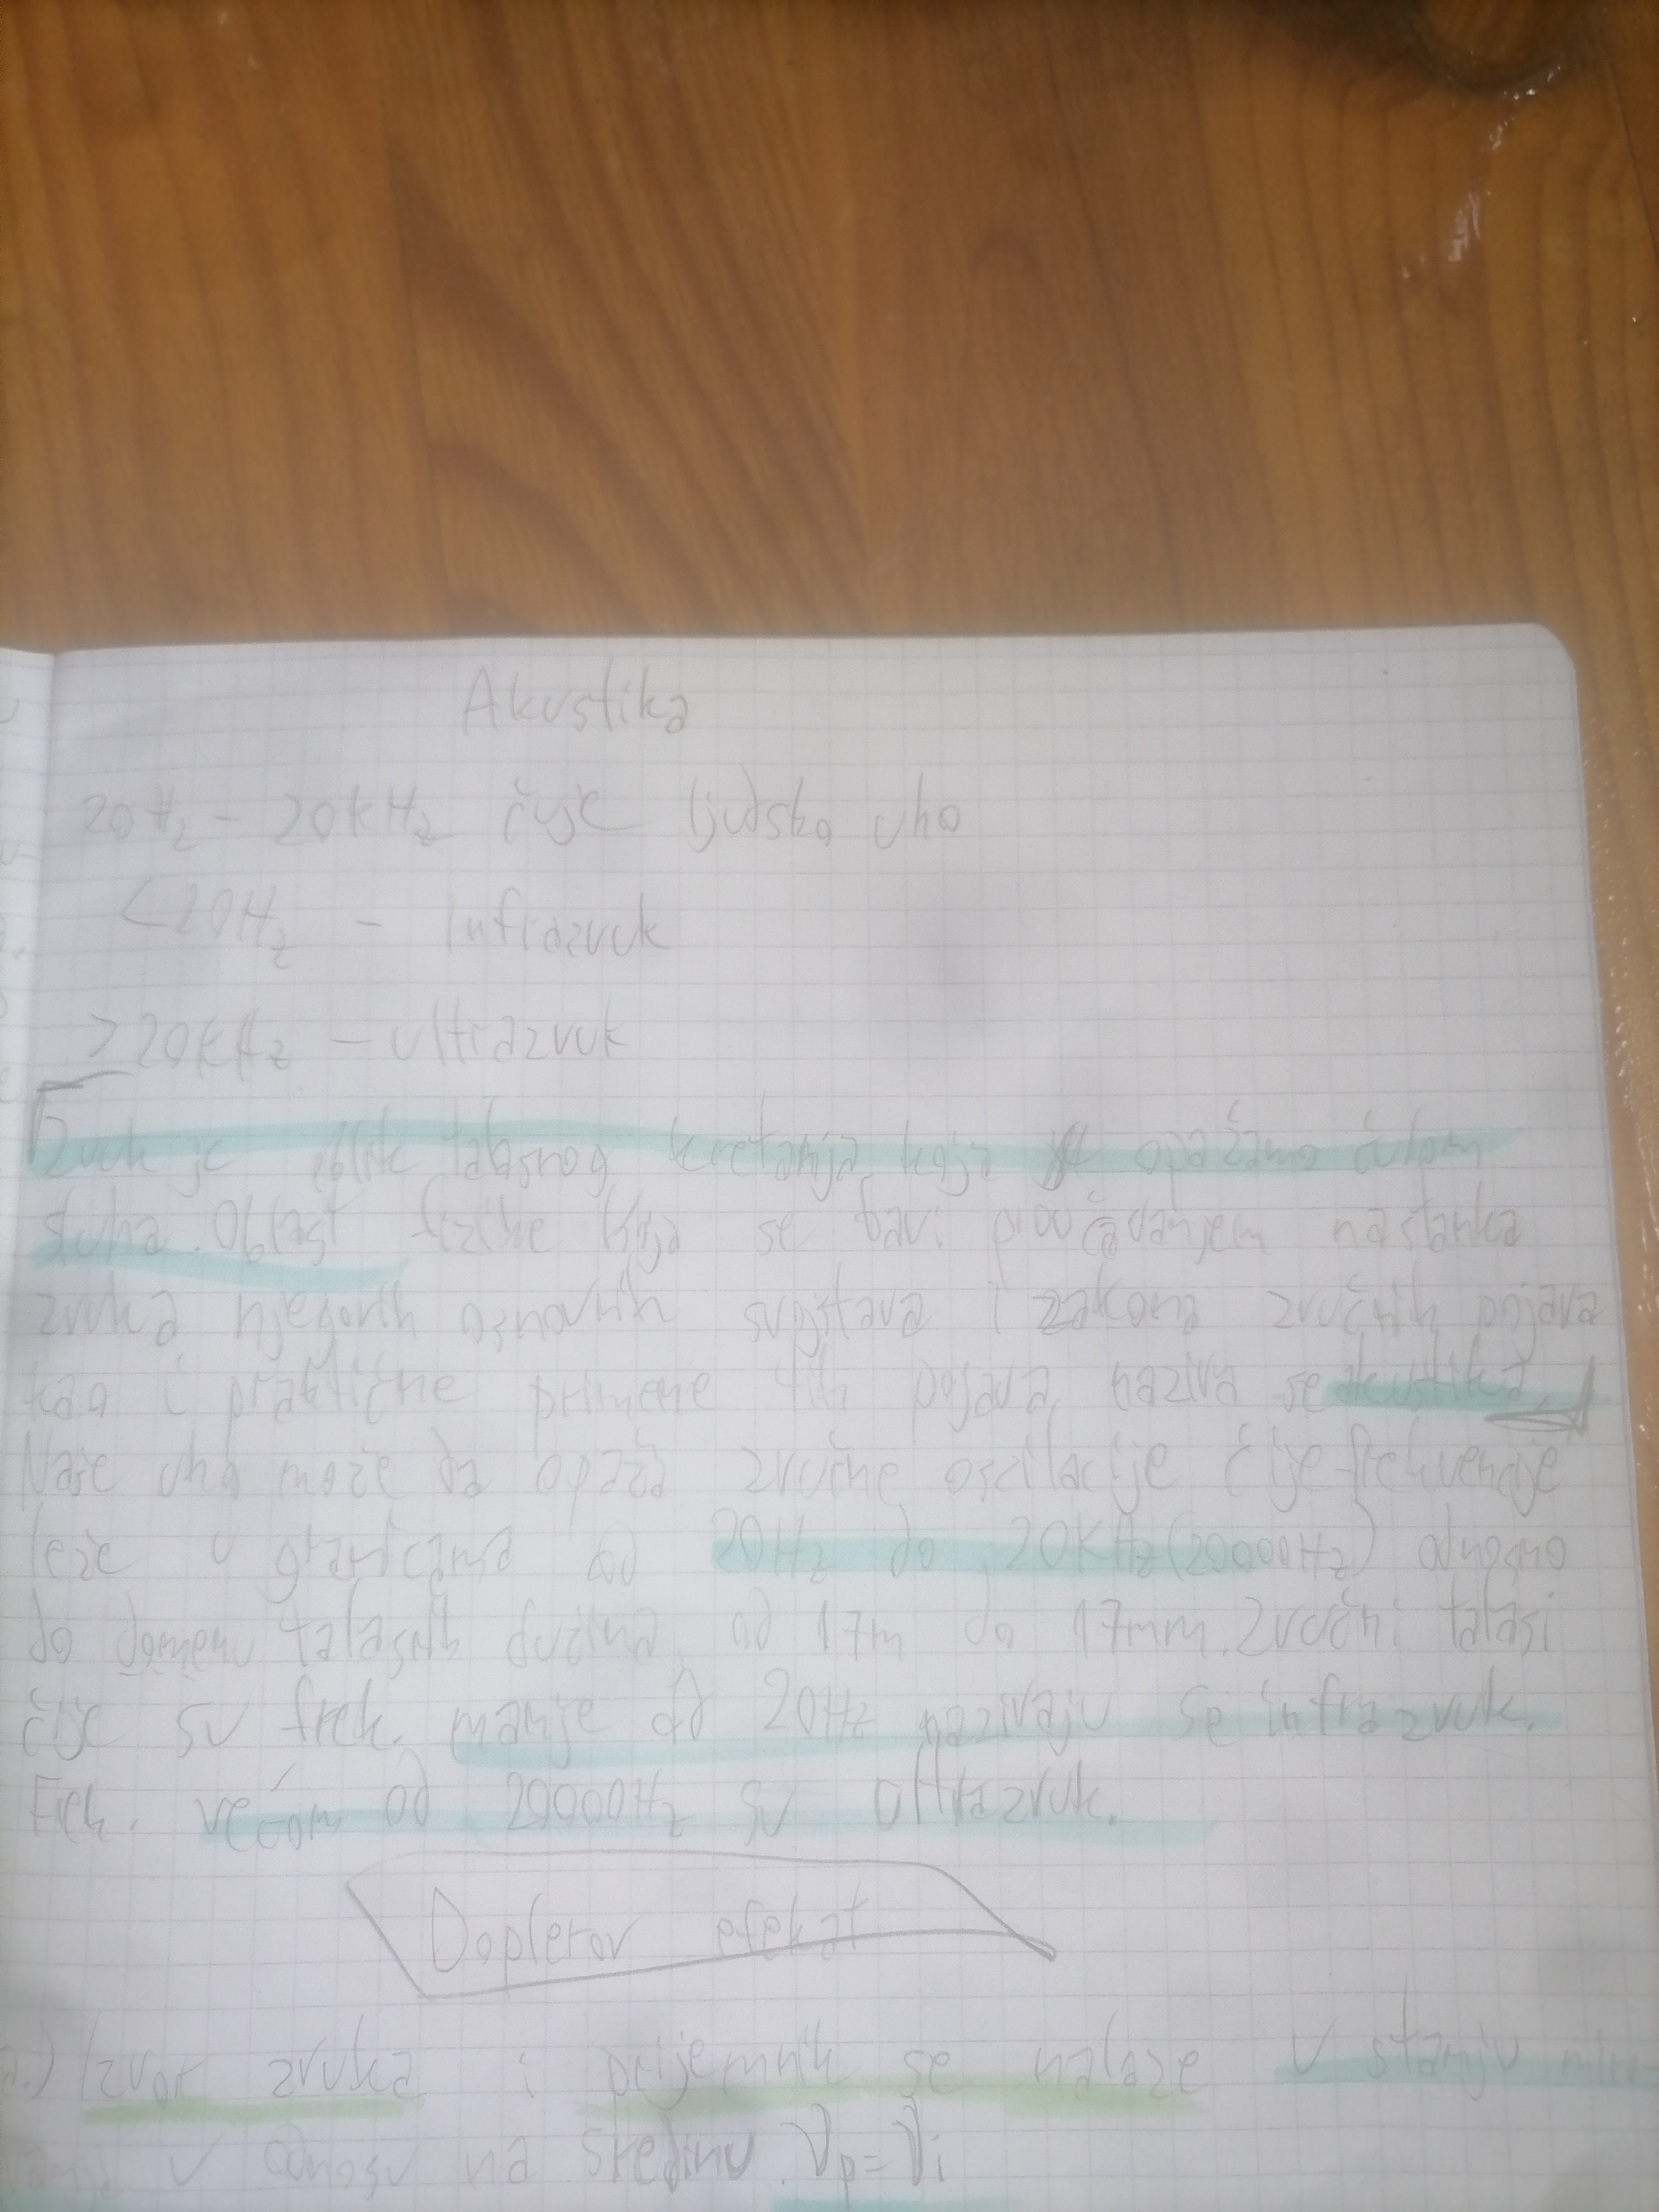 Akustika
20Hz - 20kHz čuje ljudsko uho
<20Hz - Infrazvuk
>20kHz - ultrazvuk
Zvuk je oblik talasnog kretanja koja opažamo čulom
sluha. Oblast fizike koja se bavi proučavanjem nastanka
zvuka njegovih osnovnih svojstava i zakona zvučnih pojava
kao i praktične primene tih pojava naziva se akustika.
Naše uho može da opaža zvučne oscilacije čije frekvencije
leže u granicama od 20Hz do 20KHz (20000Hz) odnosno
do domenu talasnih dužina od 17m do 17mm. Zvučni talasi
čije su frek. manje od 20Hz nazivaju se infrazvuk.
Frek. većom od 20000Hz su ultrazvuk.
Doplerov efekat
a.) Izvor zvuka i prijemnik se nalaze u stanju
u odnosu na sredinu. νp = νi